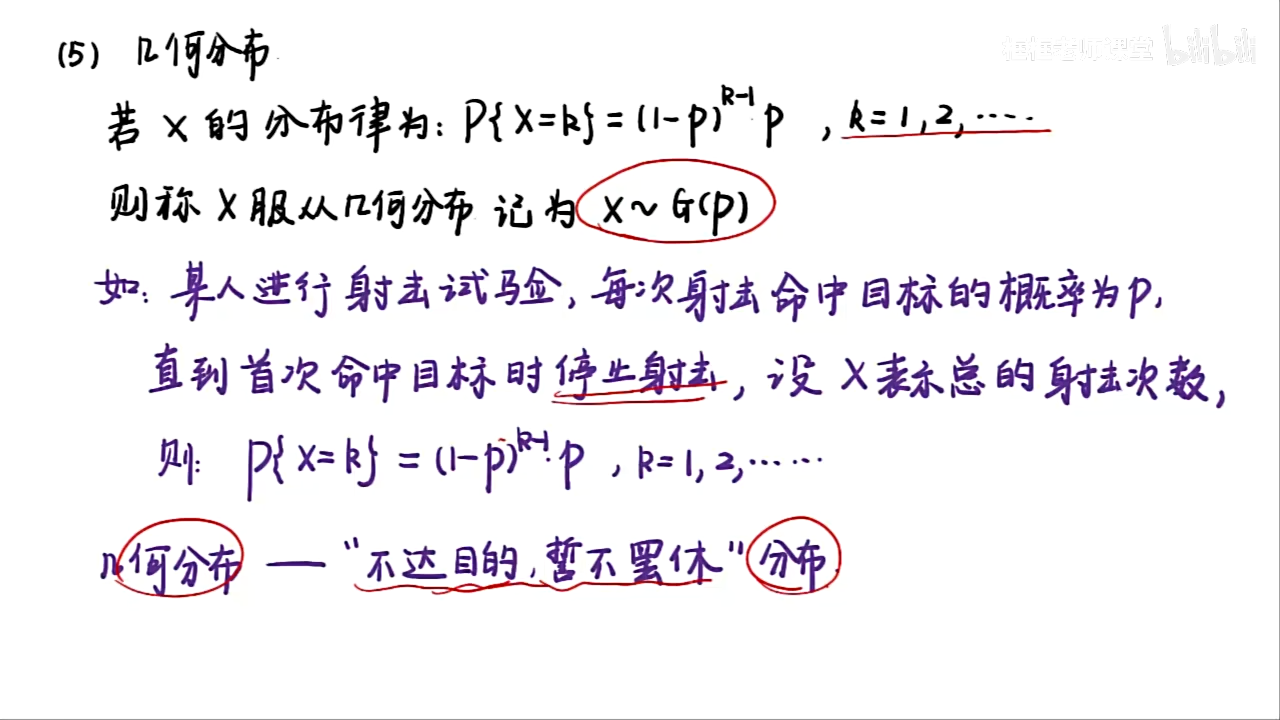 (5) 几何分布
bilibili
若 X 的分布律为: P{X=k}=(1-p)^{k-1} p , k=1,2,……
则称 X 服从几何分布 记为 X~G(p)
如: 某人进行射击试验, 每次射击命中目标的概率为p,
直到首次命中目标时停止射击, 设 X 表示总的射击次数,
则: P{X=k}=(1-p)^{k-1}·p , k=1,2,……
几何分布 — “不达目的, 誓不罢休” 分布